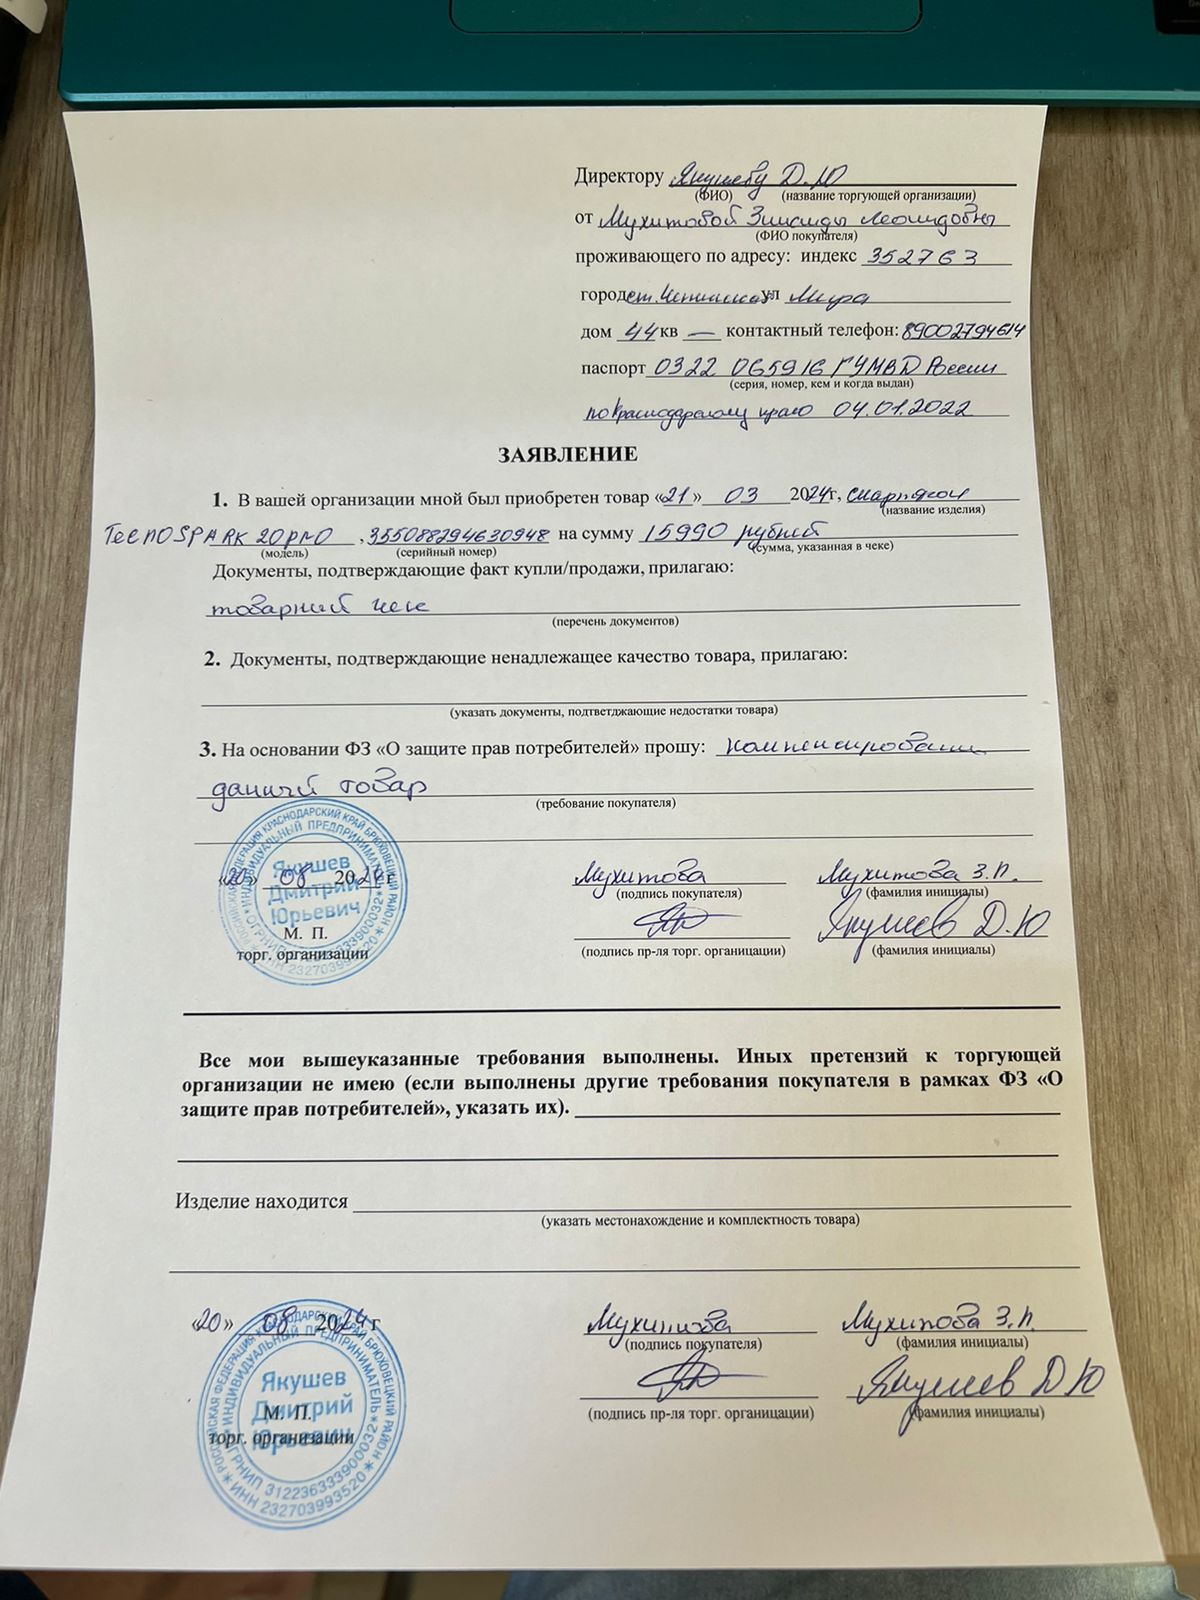 Директору Якушеву Д.Ю
(ФИО) (название торгующей организации)
от Мухитовой Зинаиды Леонидовны
(ФИО покупателя)
проживающего по адресу: индекс 352763
город ст. ул Мира
дом 44 кв — контактный телефон: 89002794614
паспорт 0322 065916 ГУМВД России
(серия, номер, кем и когда выдан)
по Краснодарскому краю 04.01.2022
ЗАЯВЛЕНИЕ
1. В вашей организации мной был приобретен товар «21» 03 2024г, смартфон
(название изделия)
TecnoSPARK 20pro , 355088294630948 на сумму 15990 рублей
(модель) (серийный номер) (сумма, указанная в чеке)
Документы, подтверждающие факт купли/продажи, прилагаю:
товарный чек
(перечень документов)
2. Документы, подтверждающие ненадлежащее качество товара, прилагаю:
(указать документы, подтветджающие недостатки товара)
3. На основании ФЗ «О защите прав потребителей» прошу: компенсировать
данный товар
(требование покупателя)
«20» 08 2024 г Мухитова Мухитова З.Л.
(подпись покупателя) (фамилия инициалы)
Якушев Д.Ю
М. П.
торг. организации (подпись пр-ля торг. органицации) (фамилия инициалы)
РОССИЙСКАЯ ФЕДЕРАЦИЯ КРАСНОДАРСКИЙ КРАЙ БРЮХОВЕЦКИЙ РАЙОН
ИНДИВИДУАЛЬНЫЙ ПРЕДПРИНИМАТЕЛЬ
Якушев
Дмитрий
Юрьевич
ОГРНИП 312236333900032
ИНН 232703993520
Все мои вышеуказанные требования выполнены. Иных претензий к торгующей
организации не имею (если выполнены другие требования покупателя в рамках ФЗ «О
защите прав потребителей», указать их).
Изделие находится
(указать местонахождение и комплектность товара)
«20» 08 2024 г Мухитова Мухитова З.Л.
(подпись покупателя) (фамилия инициалы)
Якушев Д Ю
М. П.
торг. организации (подпись пр-ля торг. органицации) (фамилия инициалы)
РОССИЙСКАЯ ФЕДЕРАЦИЯ КРАСНОДАРСКИЙ КРАЙ БРЮХОВЕЦКИЙ РАЙОН
ИНДИВИДУАЛЬНЫЙ ПРЕДПРИНИМАТЕЛЬ
Якушев
Дмитрий
Юрьевич
ОГРНИП 312236333900032
ИНН 232703993520